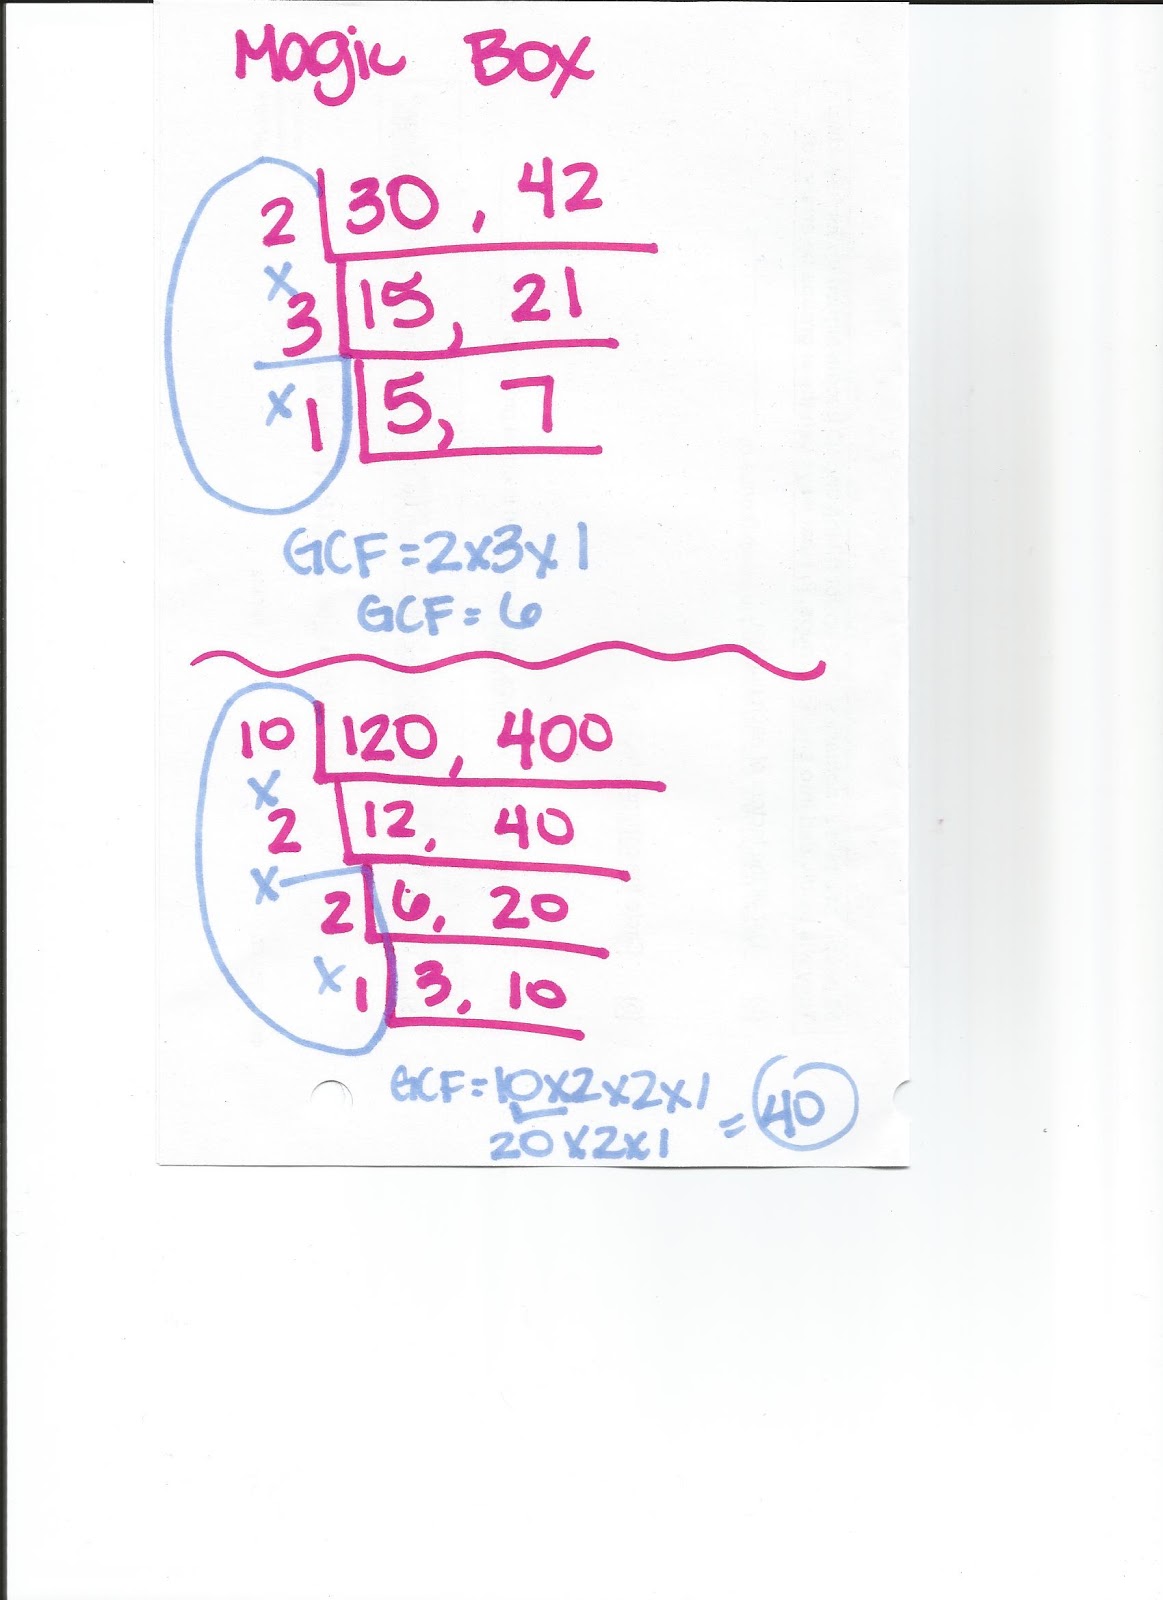 Magic Box
2 30, 42
x
3 15, 21
x 1 5, 7
GCF=2x3x1
GCF=6
10 120, 400
x
2 12, 40
x
2 6, 20
x 1 3, 10
GCF=10x2x2x1
20x2x1 = 40